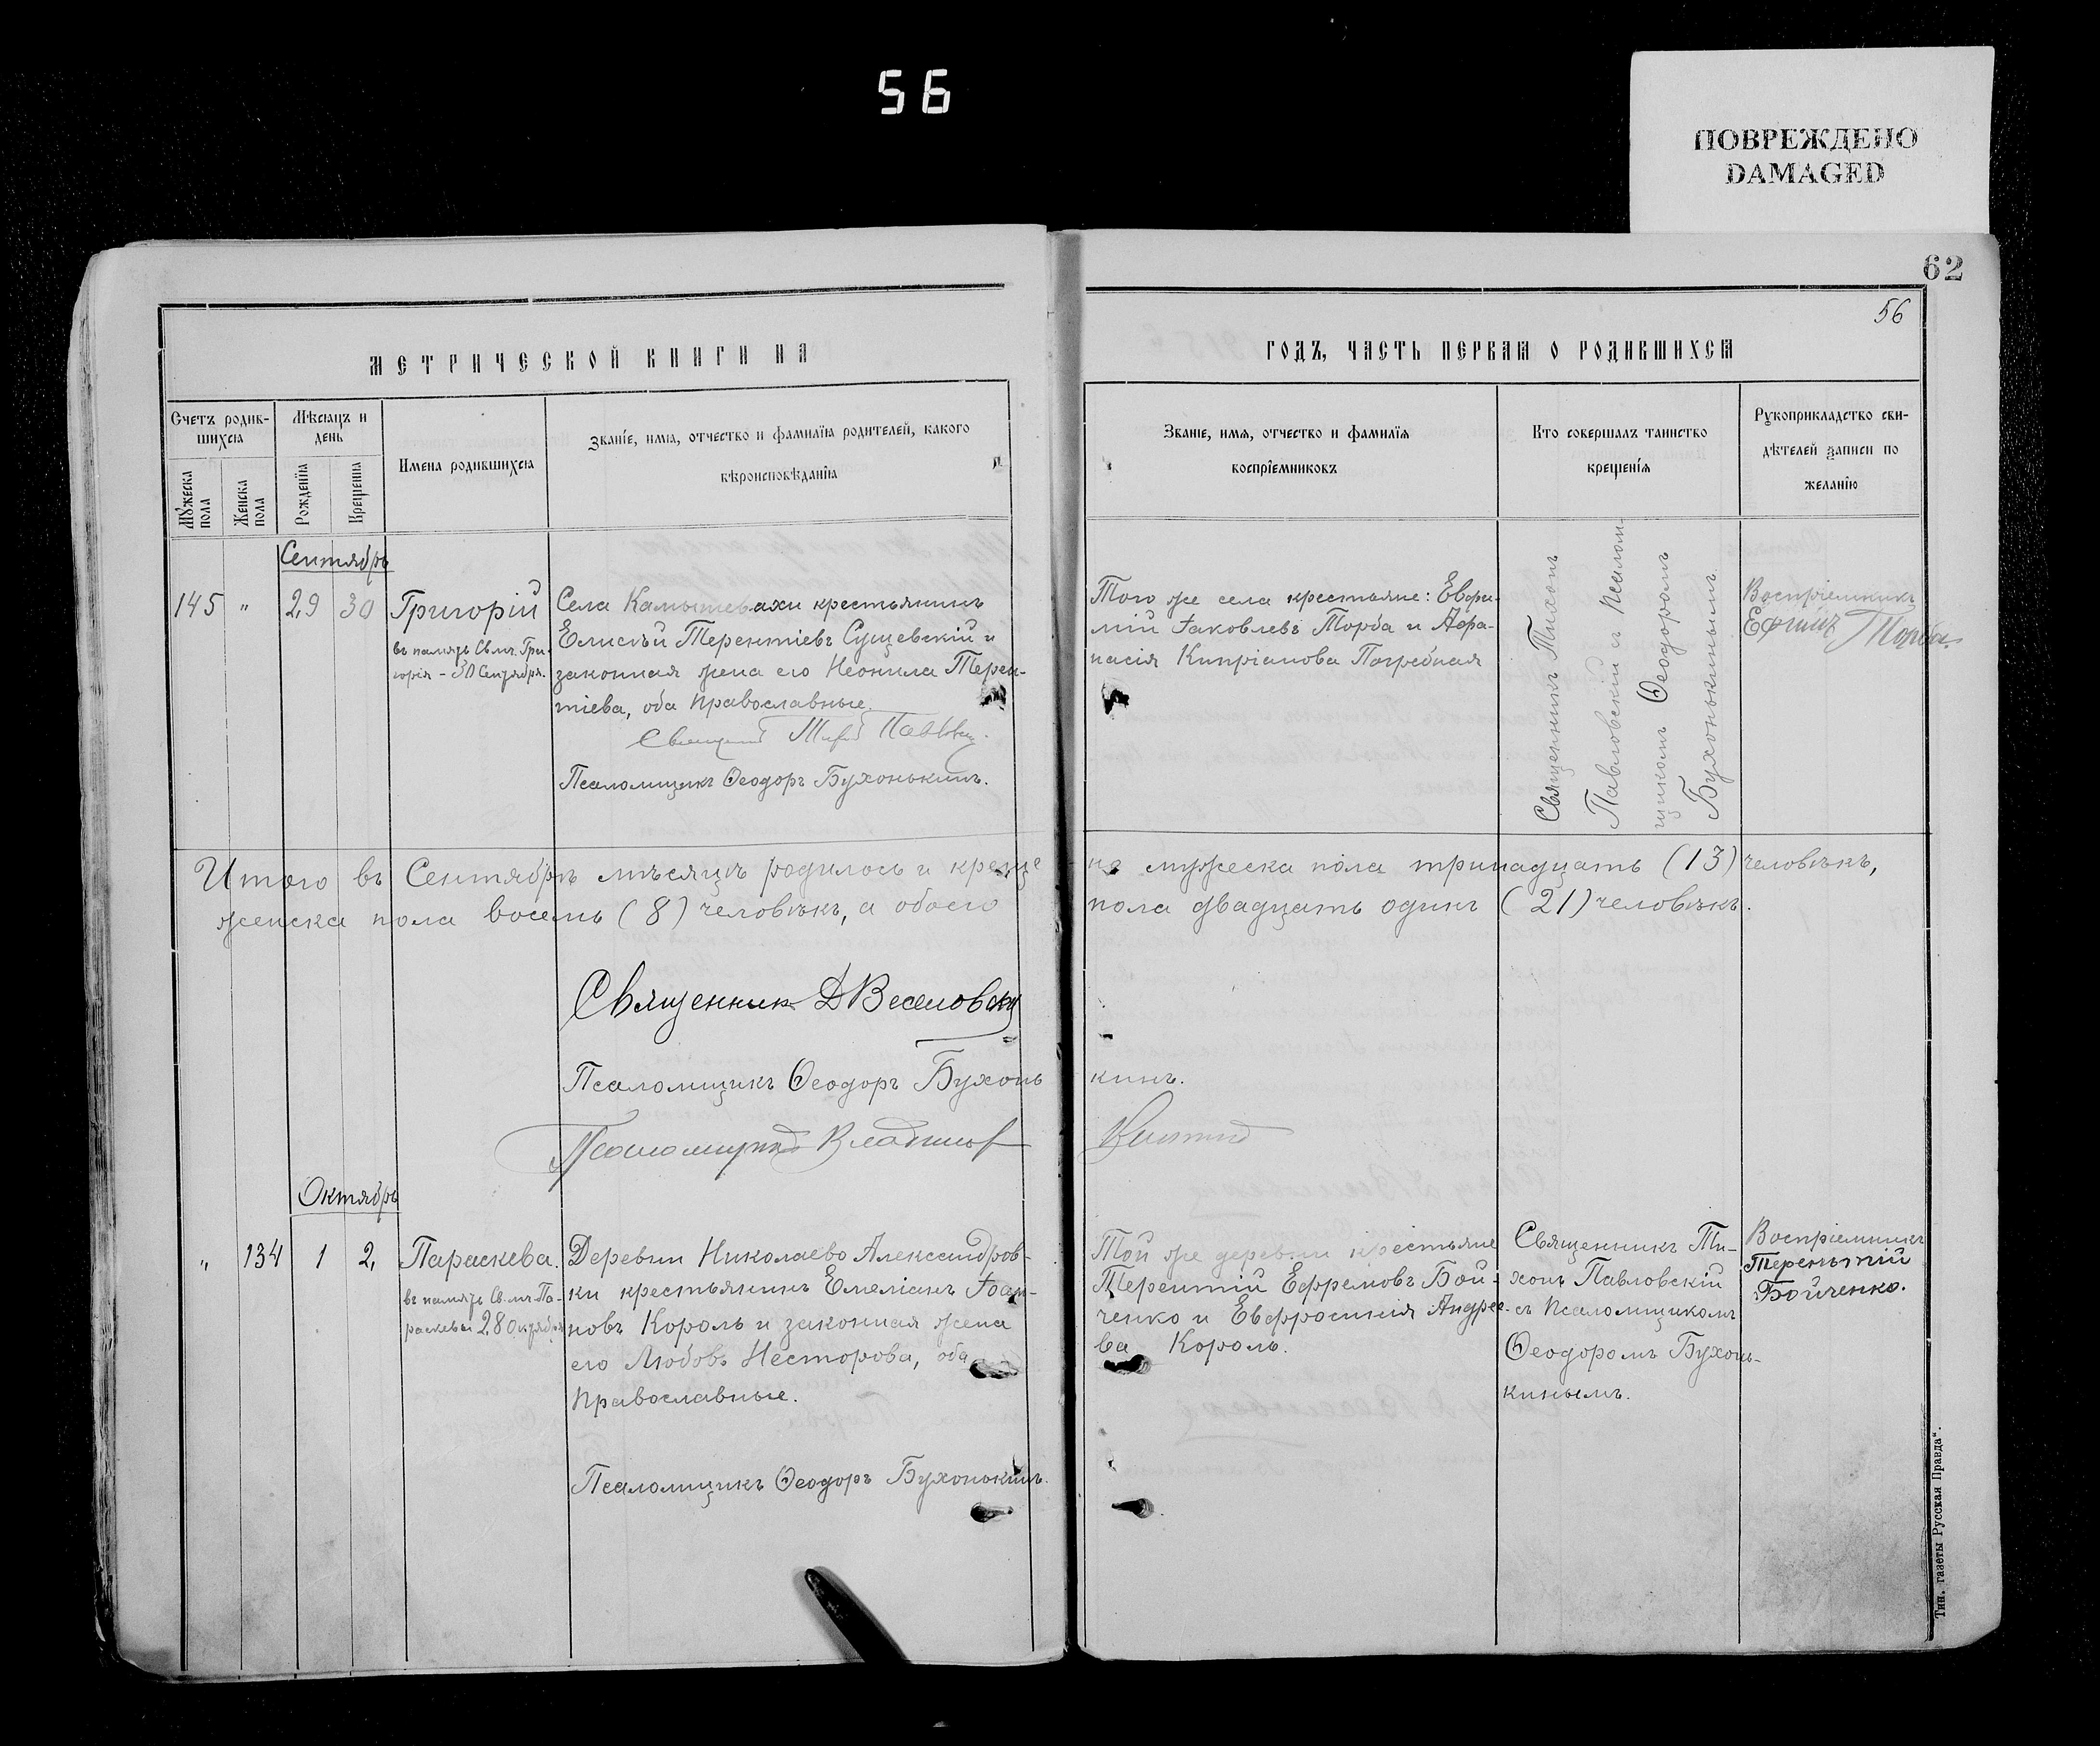 56
ПОВРЕЖДЕНО
DAMAGED
62
56
МЕТРИЧЕСКОЙ КНИГИ НА
ГОДЪ, ЧАСТЬ ПЕРВАЯ О РОДИВШИХСЯ
Счетъ родив-
шихся
Мѣсяцъ и
день
Имена родившихся
Званіе, имя, отчество и фамилія родителей, какого
вѣроисповѣданія
Мужеска пола
Женска пола
Рожденія
Крещенія
Званіе, имя, отчество и фамилія
воспріемниковъ
Кто совершалъ таинство
крещенія
Рукоприкладство сви-
дѣтелей записи по
желанію
Сентябрь
145 " 29 30
Григорій
въ память Св. мч. Гри-
горія – 30 Сентября.
Села Камышевахи крестьянинъ
Елисѣй Терентіевъ Сущевскій и
законная жена его Неонила Терен-
тіева, оба православные.
Псаломщикъ Ѳеодоръ Бухонькинъ.
Того же села крестьяне: Евфи-
мій Іаковлевъ Торба и Афа-
насія Кипріанова Погребная
Священникъ Тихонъ
Павловскій и Псалом-
щикомъ Ѳеодоромъ
Бухонькинымъ
Воспріемникъ
Ефимъ Торба.
Итого въ Сентябрѣ мѣсяцѣ родилось и креще
но мужеска пола тринадцать (13) человѣкъ,
женска пола восемь (8) человѣкъ, а обоего
пола двадцать одинъ (21) человѣкъ.
Священник Д Веселовскій
Псаломщикъ Ѳеодоръ Бухонь
кинъ.
Псаломщикъ
Октябрь
" 134 1 2.
Параскева.
въ память Св. мч. Па-
раскевы 28 октября
Деревни Николаево Александров-
ки крестьянинъ Емеліанъ Іоан-
новъ Король и законная жена
его Любовь Несторова, оба
православные.
Псаломщикъ Ѳеодоръ Бухонькинъ.
Той же деревни крестьяне
Терентій Ефремовъ Бой-
ченко и Евфросинія Андрее-
ва Король.
Священникъ Ти-
хонъ Павловскій
съ Псаломщикомъ
Ѳеодоромъ Бухонь-
кинымъ.
Воспріемникъ
Терентій
Бойченко.
Тип. газеты Русская Правда".